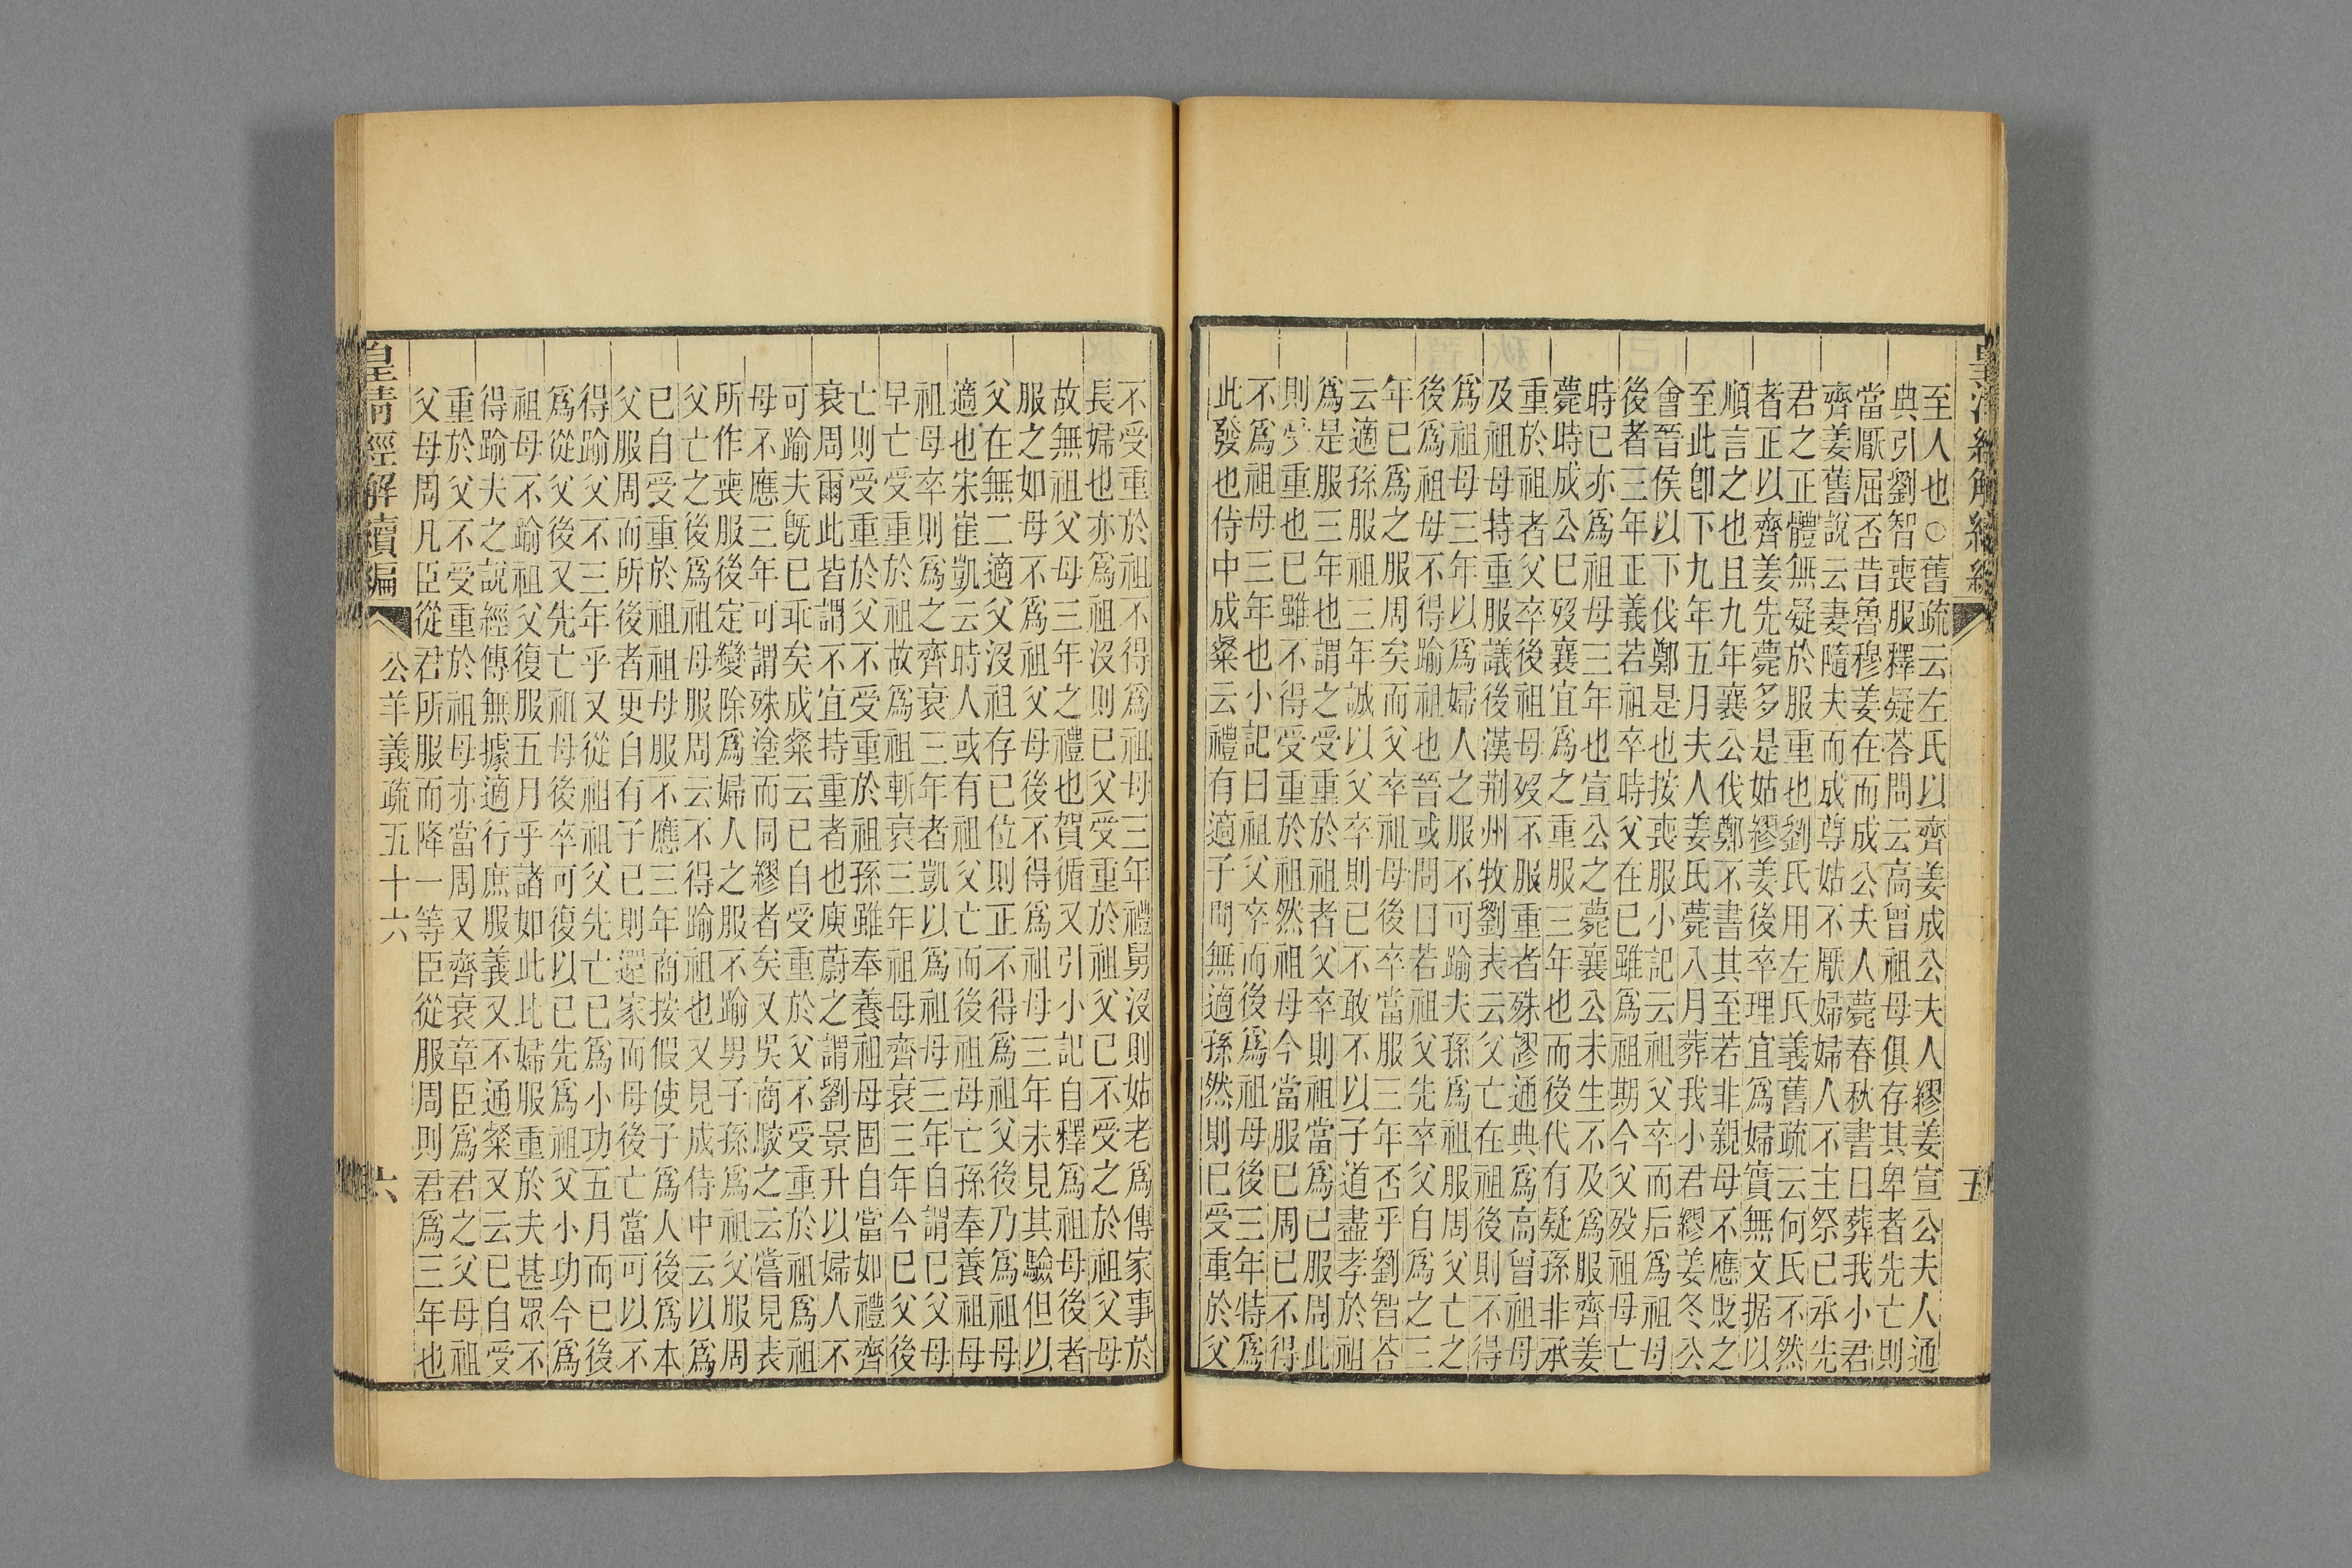 皇清經解續編
五
至人也○舊疏云左氏以齊姜成公夫人繆姜宣公夫人通
典引劉智喪服釋疑荅問云高曾祖母俱存其卑者先亡則
當厭屈否昔魯穆姜在而成公夫人薨春秋書曰葬我小君
齊姜舊說云妻隨夫而成尊姑不厭婦婦人不主祭已承先
君之正體無疑於服重也劉氏用左氏義舊疏云何氏不然
者正以齊姜先薨多是姑繆姜後卒理宜爲婦實無文据以
順言之也且九年襄公伐鄭不書其至若非親母不應貶之
至此卽下九年五月夫人姜氏薨八月葬我小君繆姜冬公
會晉侯以下伐鄭是也按喪服小記云祖父卒而后爲祖母
後者三年正義若祖卒時父在已雖爲祖期今父歿祖母亡
時已亦爲祖母三年也宣公之薨襄公未生不及爲服齊姜
薨時成公已歿襄宜爲之重服三年也而後代有疑孫非承
重於祖者父卒後祖母歿不服重者殊謬通典爲高曾祖母
及祖母持重服議後漢荆州牧劉表云父亡在祖後則不得
爲祖母三年以爲婦人之服不可踰夫孫爲祖服周父亡之
後爲祖母不得踰祖也晉或問曰若祖父先卒父自爲之三
年已爲之服周矣而父卒祖母後卒當服三年否乎劉智荅
云適孫服祖三年誠以父卒則已不敢不以子道盡孝於祖
爲是服三年也謂之受重於祖者父卒則祖當爲已服周此
則受重也已雖不得受重於祖然祖母今當服已周已不得
不爲祖母三年也小記曰祖父卒而後爲祖母後三年特爲
此發也侍中成粲云禮有適子問無適孫然則已受重於父
不受重於祖不得爲祖母三年禮舅沒則姑老爲傳家事於
長婦也亦爲祖沒則已父受重於祖父已不受之於祖父母
故無祖父母三年之禮也賀循又引小記自釋爲祖母後者
服之如母不爲祖父母後不得爲祖母三年未見其驗但以
父在無二適父沒祖存已位則正不得爲祖父後乃爲祖母
適也宋崔凱云時人或有祖父亡而後祖母亡孫奉養祖母
祖母卒則爲之齊衰三年者凱以爲祖母三年自謂已父母
早亡受重於祖故爲祖斬衰三年祖母齊衰三年今已父後
亡則受重於父不受重於祖孫雖奉養祖母固自當如禮齊
衰周爾此皆謂不宜持重者也庾蔚之謂劉景升以婦人不
可踰夫旣已乖矣成粲云已自受重於父不受重於祖爲祖
母不應三年可謂殊塗而同繆者矣又吳商駮之云嘗見表
所作喪服後定變除爲婦人之服不踰男子孫爲祖父服周
父亡之後爲祖母服周云不得踰祖也又見成侍中云以爲
已自受重於祖祖母服不應三年商按假使子爲人後爲本
父服周而所後者更自有子已則還家而母後亡當可以不
得踰父不三年乎又從祖祖父先亡已爲小功五月而已後
爲從父後又先亡祖母後卒可復以已先爲祖父小功今爲
祖母不踰祖父復服五月乎諸如此比婦服重於夫甚眾不
得踰夫之說經傳無據適行庶服義又不通粲又云已自受
重於父不受重於祖母亦當周又齊衰章臣爲君之父母祖
父母周凡臣從君所服而降一等臣從服周則君爲三年也
皇清經解續編
公羊義疏五十六
六